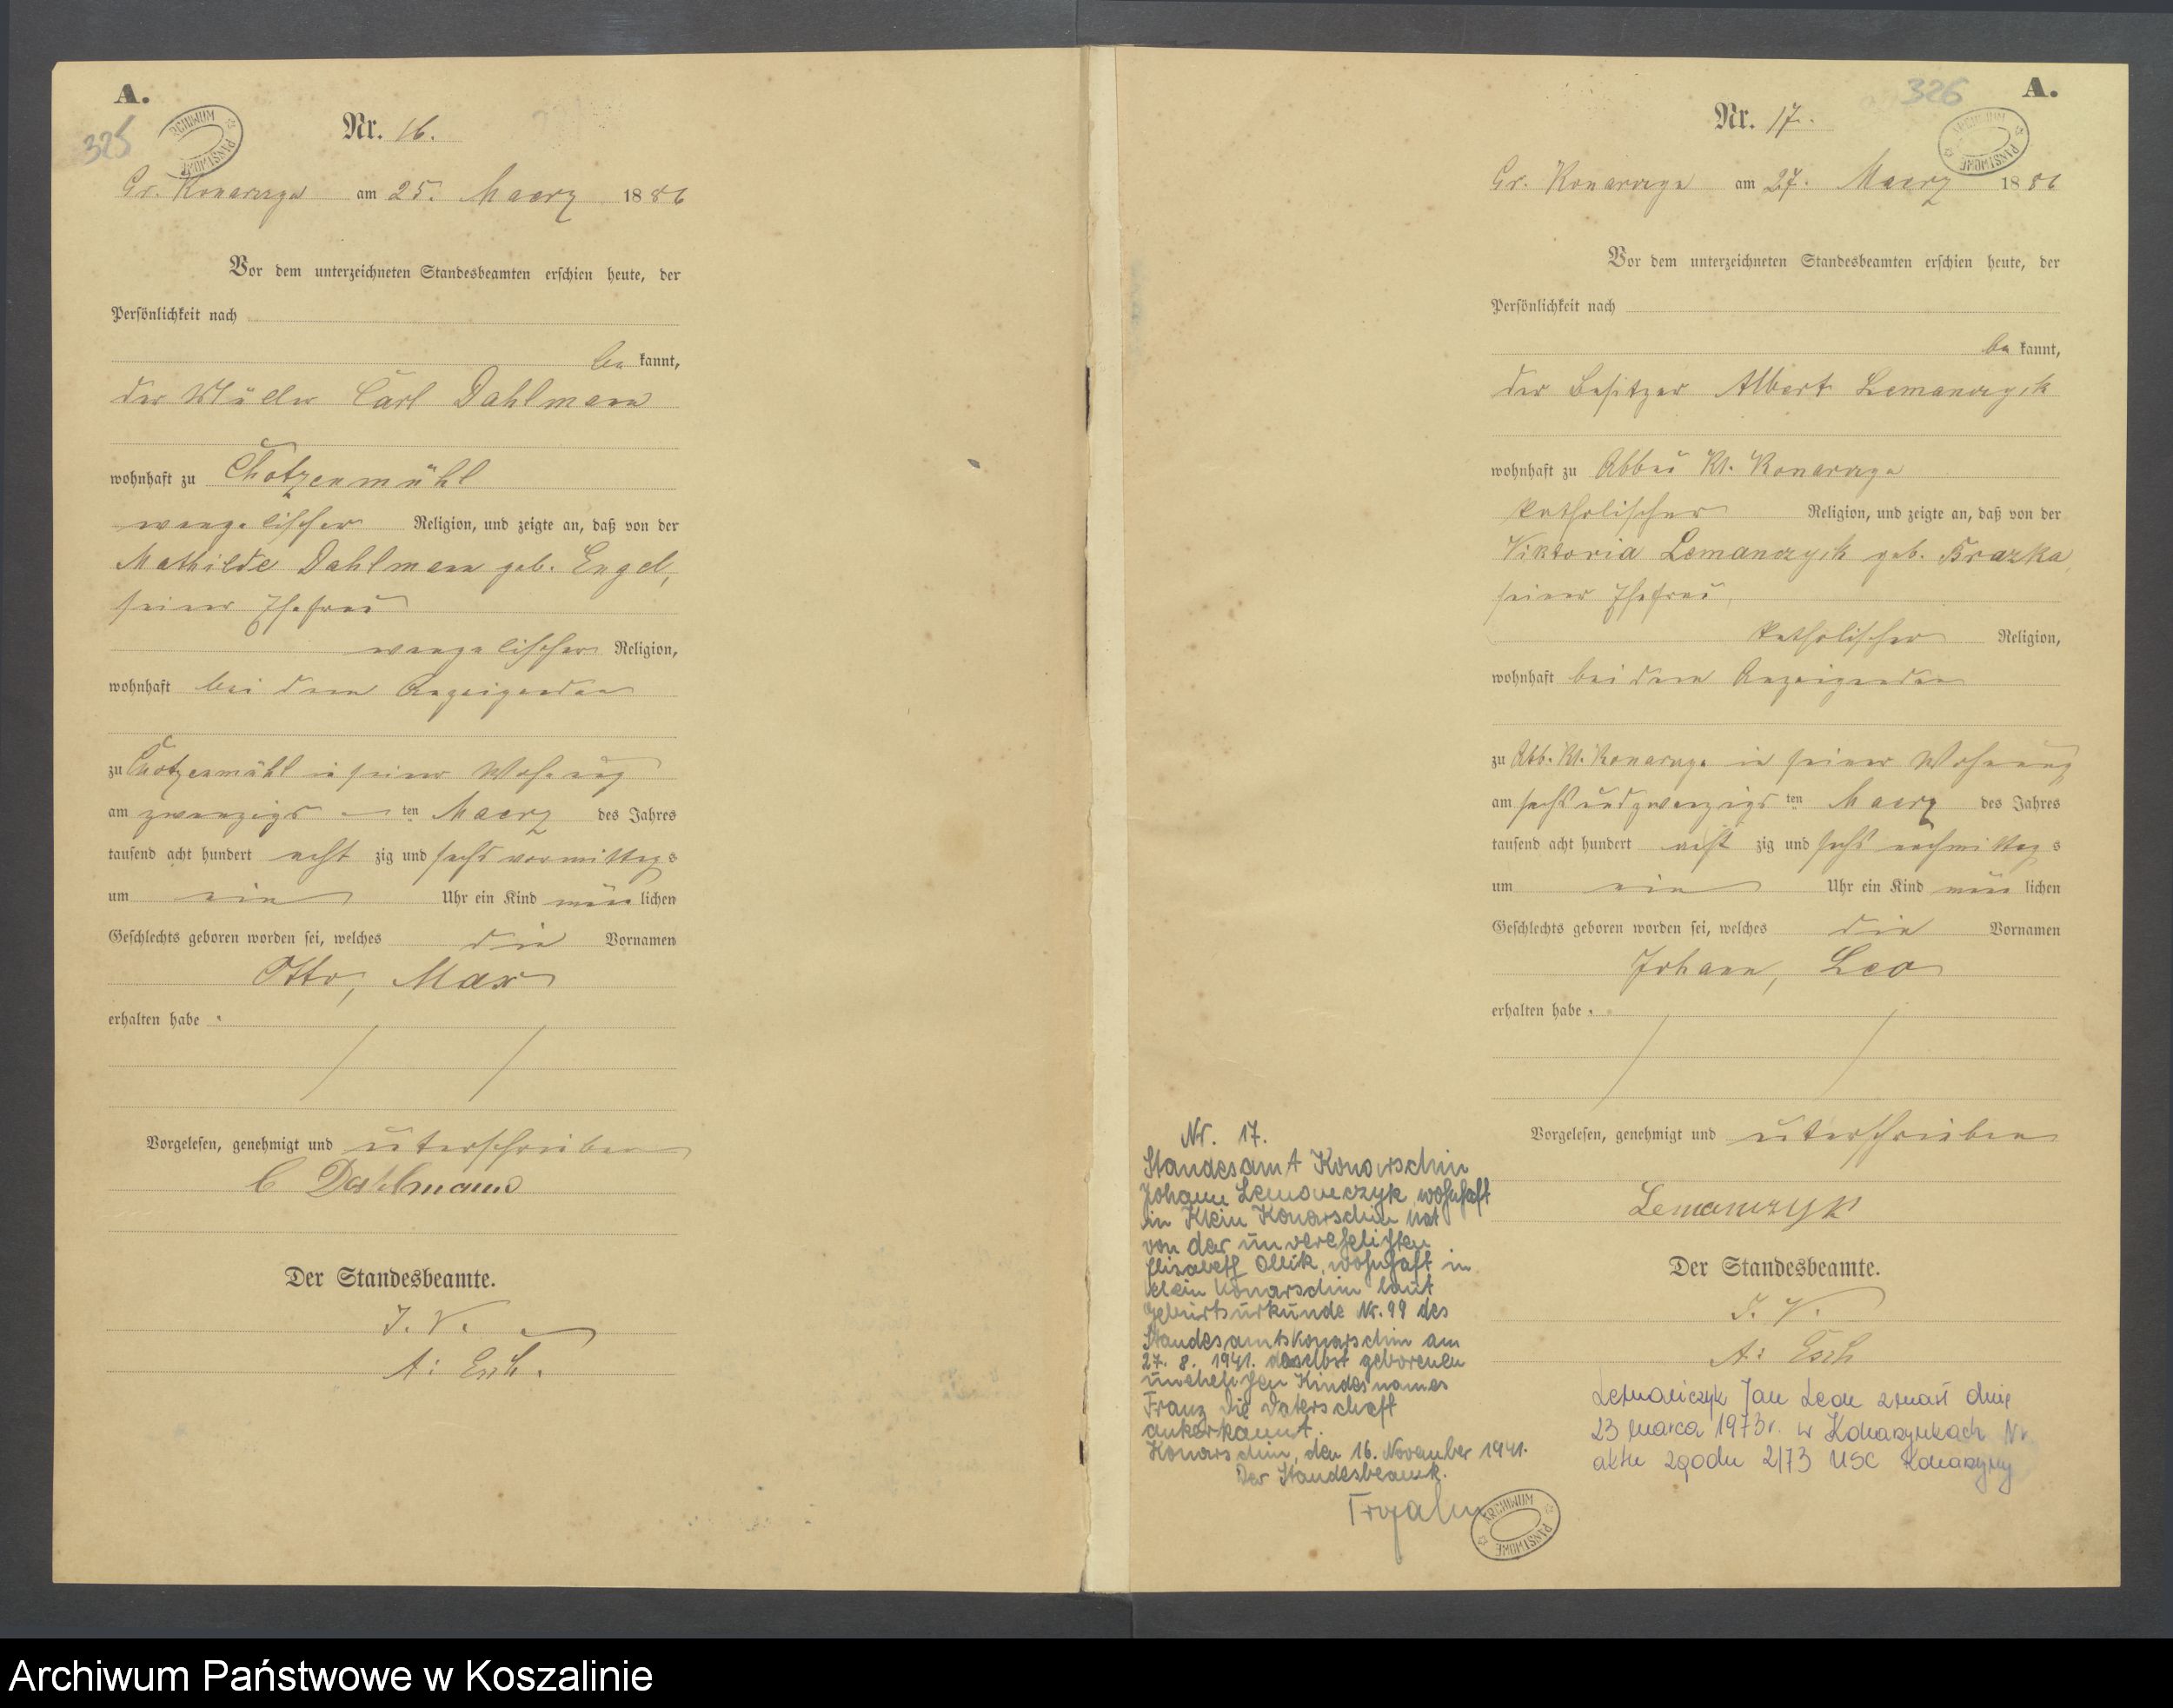 A.
325
ARCHIWUM PAŃSTWOWE
Nr. 16.
Gr. Konarczyn am 25. Maerz 1886
Vor dem unterzeichneten Standesbeamten erschien heute, der
Persönlichkeit nach
be kannt,
der Müller Carl Dahlmann
wohnhaft zu Chotzenmühl
evangelischer Religion, und zeigte an, daß von der
Mathilde Dahlmann geb. Engel,
seiner Ehefrau
evangelischer Religion,
wohnhaft bei dem Anzeigenden
zu Chotzenmühl in seiner Wohnung
am zwanzigs ten Maerz des Jahres
tausend acht hundert acht zig und sechs vormittags
um ein Uhr ein Kind männ lichen
Geschlechts geboren worden sei, welches die Vornamen
Otto, Max
erhalten habe.
Vorgelesen, genehmigt und unterschrieben
C Dahlmann
Der Standesbeamte.
J. V.
A: Esch.
326
A.
ARCHIWUM PAŃSTWOWE
Nr. 17.
Gr. Konarczyn am 27. Maerz 1886
Vor dem unterzeichneten Standesbeamten erschien heute, der
Persönlichkeit nach
be kannt,
der Besitzer Albert Lemanczyk
wohnhaft zu Abbau Kl. Konarczyn
katholischer Religion, und zeigte an, daß von der
Viktoria Lemanczyk geb.
seiner Ehefrau,
katholischer Religion,
wohnhaft bei dem Anzeigenden
zu Abb. Kl. Konarczyn in seiner Wohnung
am sechsundzwanzigs ten Maerz des Jahres
tausend acht hundert acht zig und sechs nachmittags
um ein Uhr ein Kind männ lichen
Geschlechts geboren worden sei, welches die Vornamen
Johann, Leo
erhalten habe.
Vorgelesen, genehmigt und unterschrieben
Lemanczyk
Der Standesbeamte.
J. V.
A: Esch
Nr. 17.
Standesamt Konarschin
Johann Lemanczyk, wohnhaft
in Klein Konarschin hat
von der unverehelichten
Elisabeth Ollik, wohnhaft in
Klein Konarschin laut
Geburtsurkunde Nr. 99 des
Standesamts Konarschin am
27. 8. 1941. daselbst geborenen
unehelichen Kindes names
Franz die Vaterschaft
ankerkannt.
Konarschin, den 16. November 1941.
Der Standesbeamte.
ARCHIWUM PAŃSTWOWE
Lemańczyk Jan Leon zmarł dnia
23 marca 1973r. w Konarzynkach Nr
aktu zgodu 2/73 USC Konarzyny
Archiwum Państwowe w Koszalinie